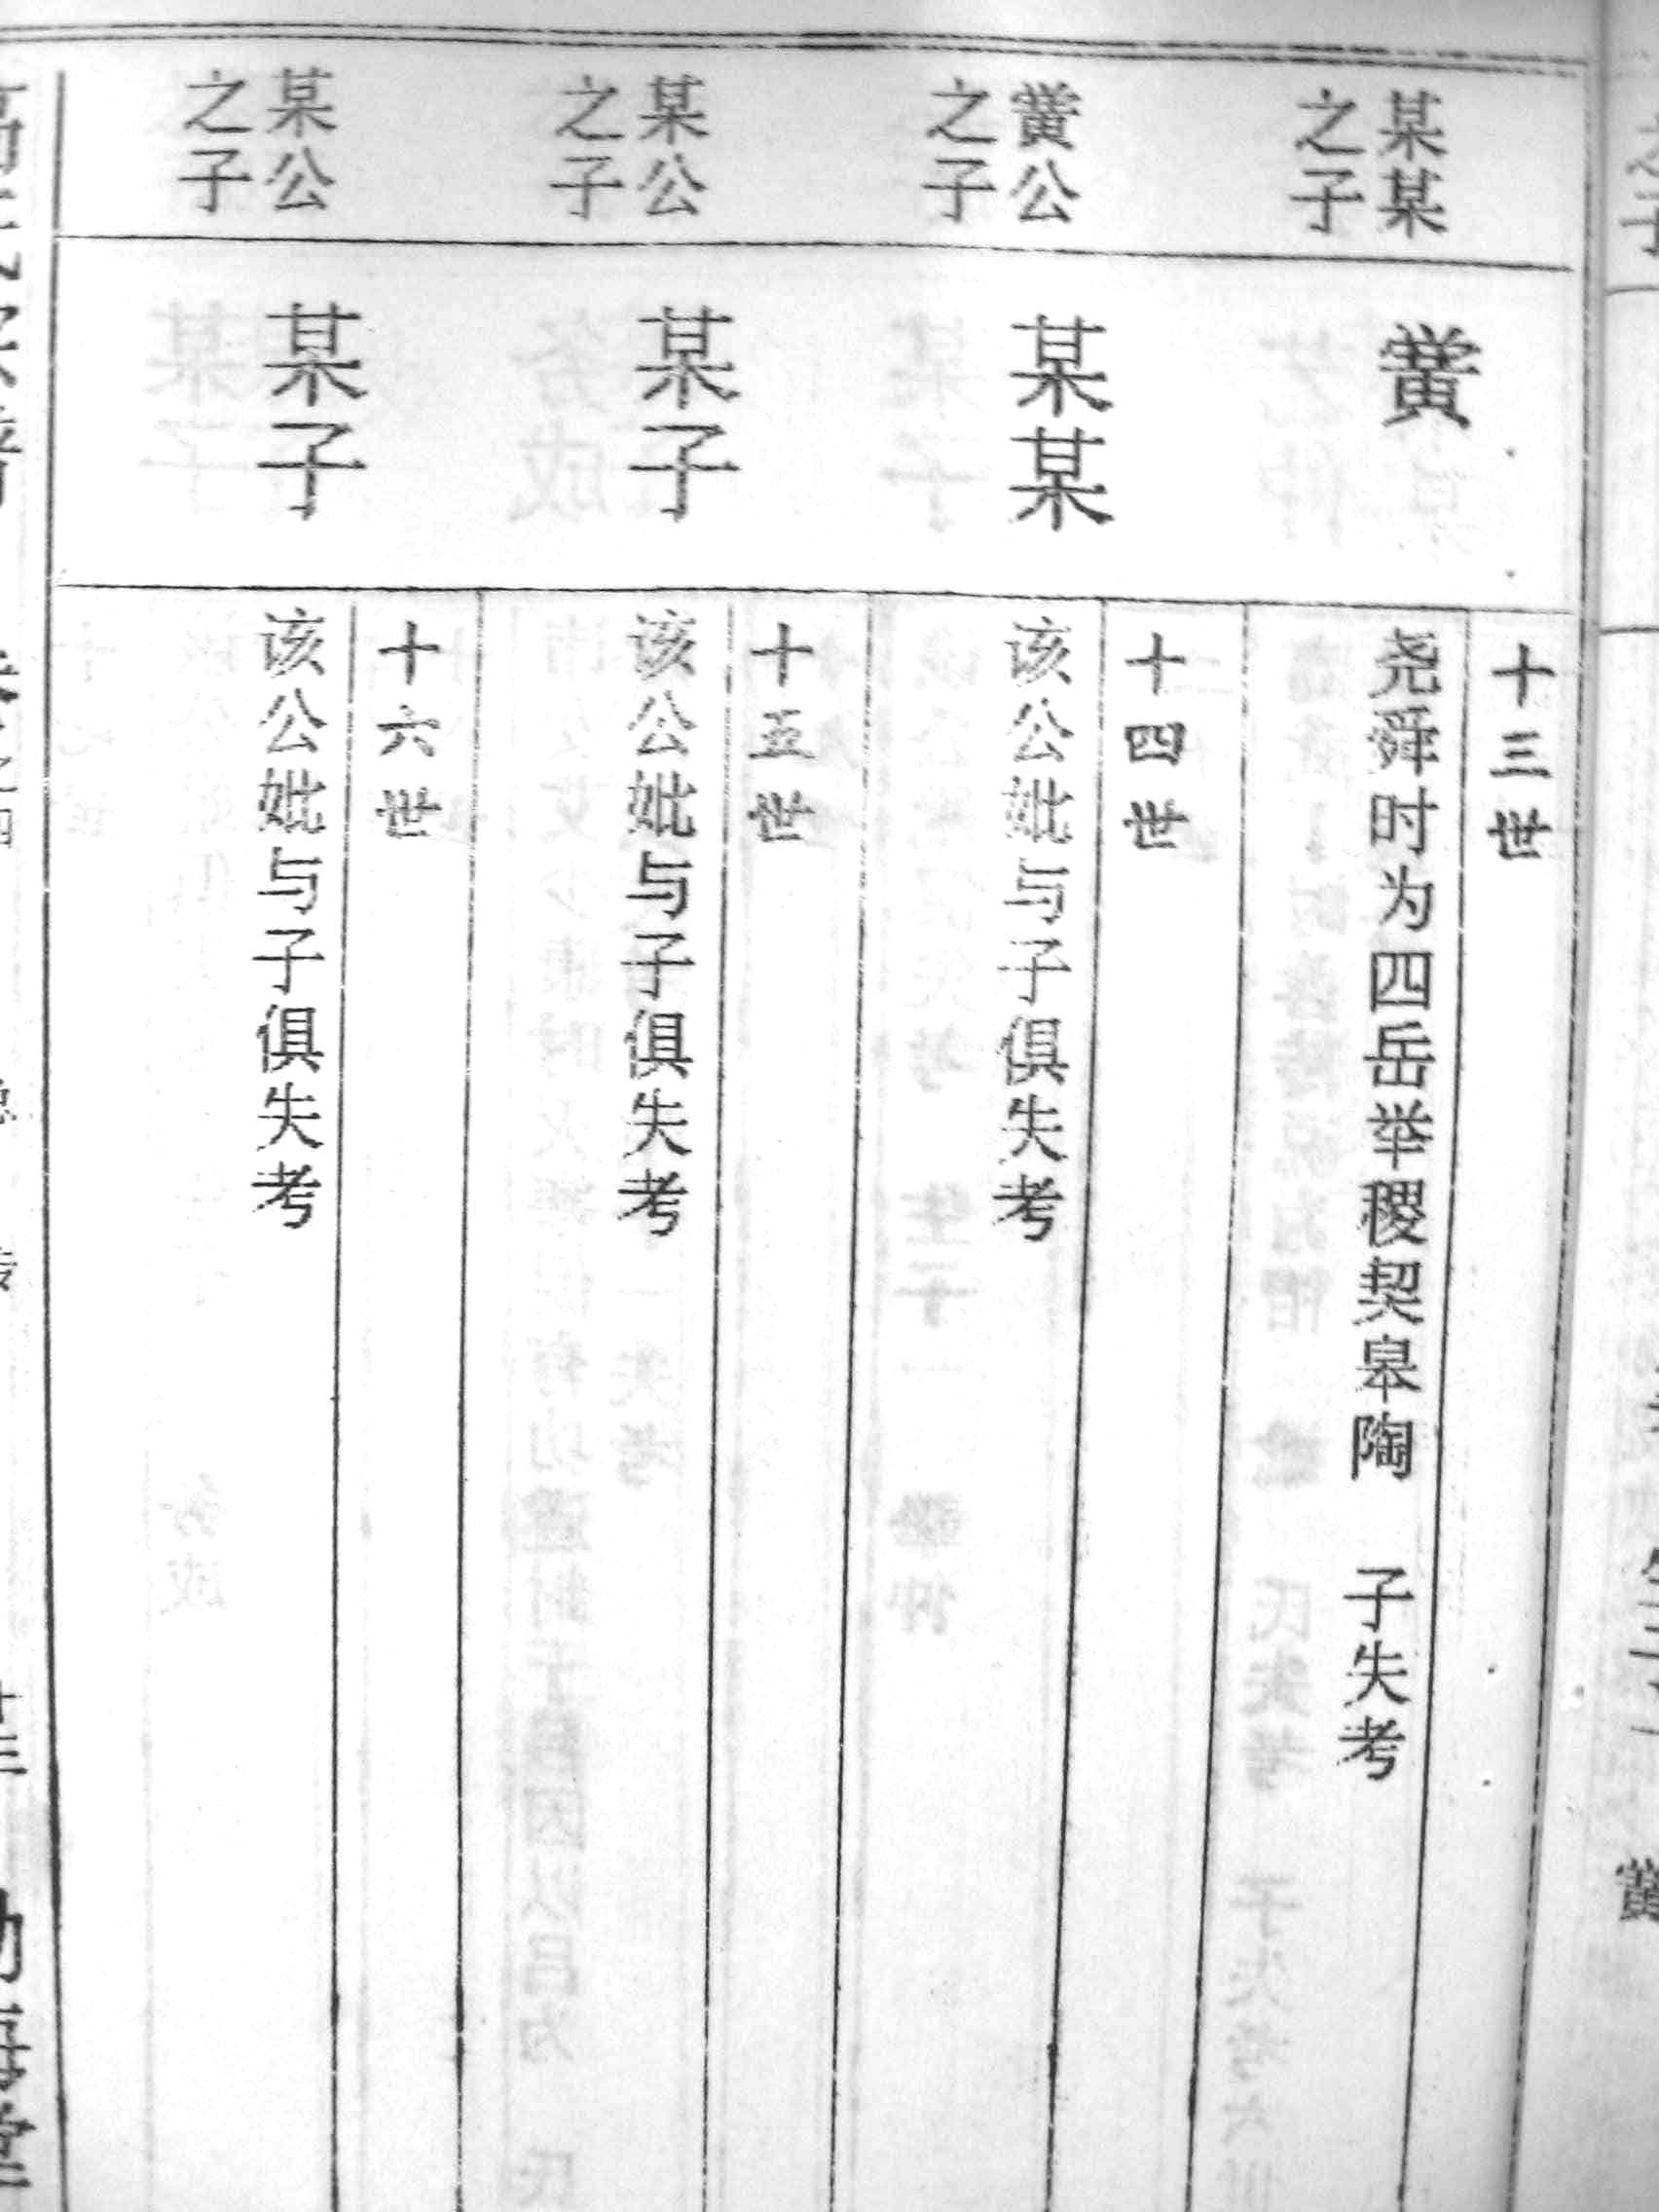 某某
之子
黉
十三世
尧舜时为四岳举稷契皋陶　子失考
黉公
之子
某某
十四世
该公妣与子俱失考
某公
之子
某子
十五世
该公妣与子俱失考
某公
之子
某子
十六世
该公妣与子俱失考